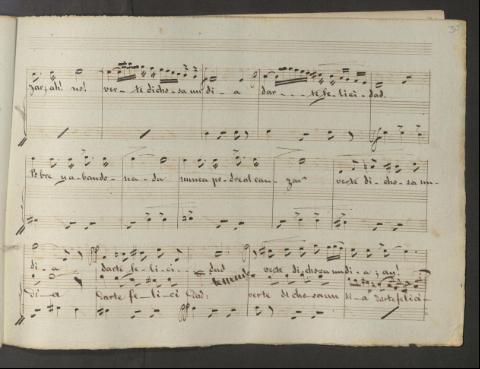 zar; ah! no! ver-te dicho-sa un di-a dar---te fe-lici-dad.
Pobre y abando-na-da nunca po-dré al can-zar verte di-cho-sa un
di-a darte fe-li-ci-dad verte dichosa un di-a; ay!
di-a Darte fe-li-ci Dad: verte di cho-sa un di-a darte felici-